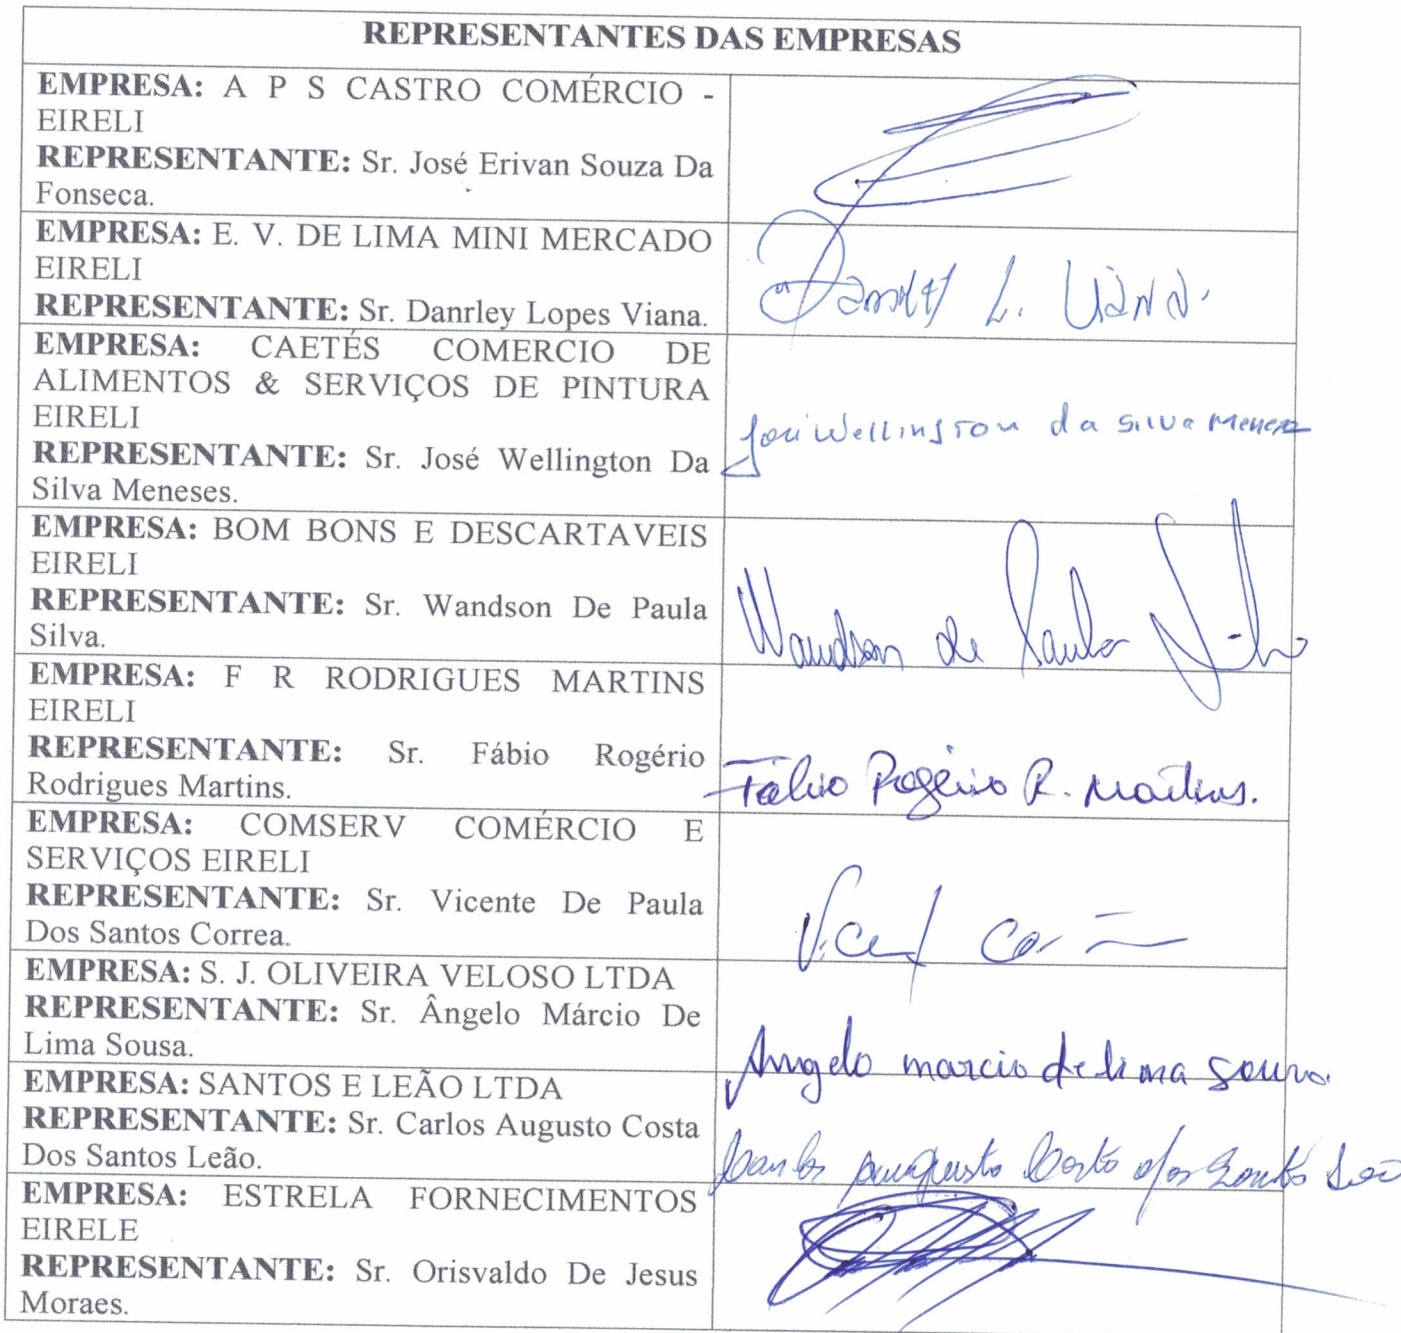 REPRESENTANTES DAS EMPRESAS
EMPRESA: A P S CASTRO COMÉRCIO -
EIRELI
REPRESENTANTE: Sr. José Erivan Souza Da
Fonseca.
EMPRESA: E. V. DE LIMA MINI MERCADO
EIRELI
REPRESENTANTE: Sr. Danrley Lopes Viana.
Danrley L. Viana.
EMPRESA: CAETÉS COMERCIO DE
ALIMENTOS & SERVIÇOS DE PINTURA
EIRELI
REPRESENTANTE: Sr. José Wellington Da
Silva Meneses.
José Wellington da Silva
EMPRESA: BOM BONS E DESCARTAVEIS
EIRELI
REPRESENTANTE: Sr. Wandson De Paula
Silva.
Wandson de Paula Silva
EMPRESA: F R RODRIGUES MARTINS
EIRELI
REPRESENTANTE: Sr. Fábio Rogério
Rodrigues Martins.
Fábio Rogério R. Martins.
EMPRESA: COMSERV COMÉRCIO E
SERVIÇOS EIRELI
REPRESENTANTE: Sr. Vicente De Paula
Dos Santos Correa.
EMPRESA: S. J. OLIVEIRA VELOSO LTDA
REPRESENTANTE: Sr. Ângelo Márcio De
Lima Sousa.
Angelo marcio de lima Sousa.
EMPRESA: SANTOS E LEÃO LTDA
REPRESENTANTE: Sr. Carlos Augusto Costa
Dos Santos Leão.
Carlos Augusto Costa dos Santos Leão
EMPRESA: ESTRELA FORNECIMENTOS
EIRELE
REPRESENTANTE: Sr. Orisvaldo De Jesus
Moraes.